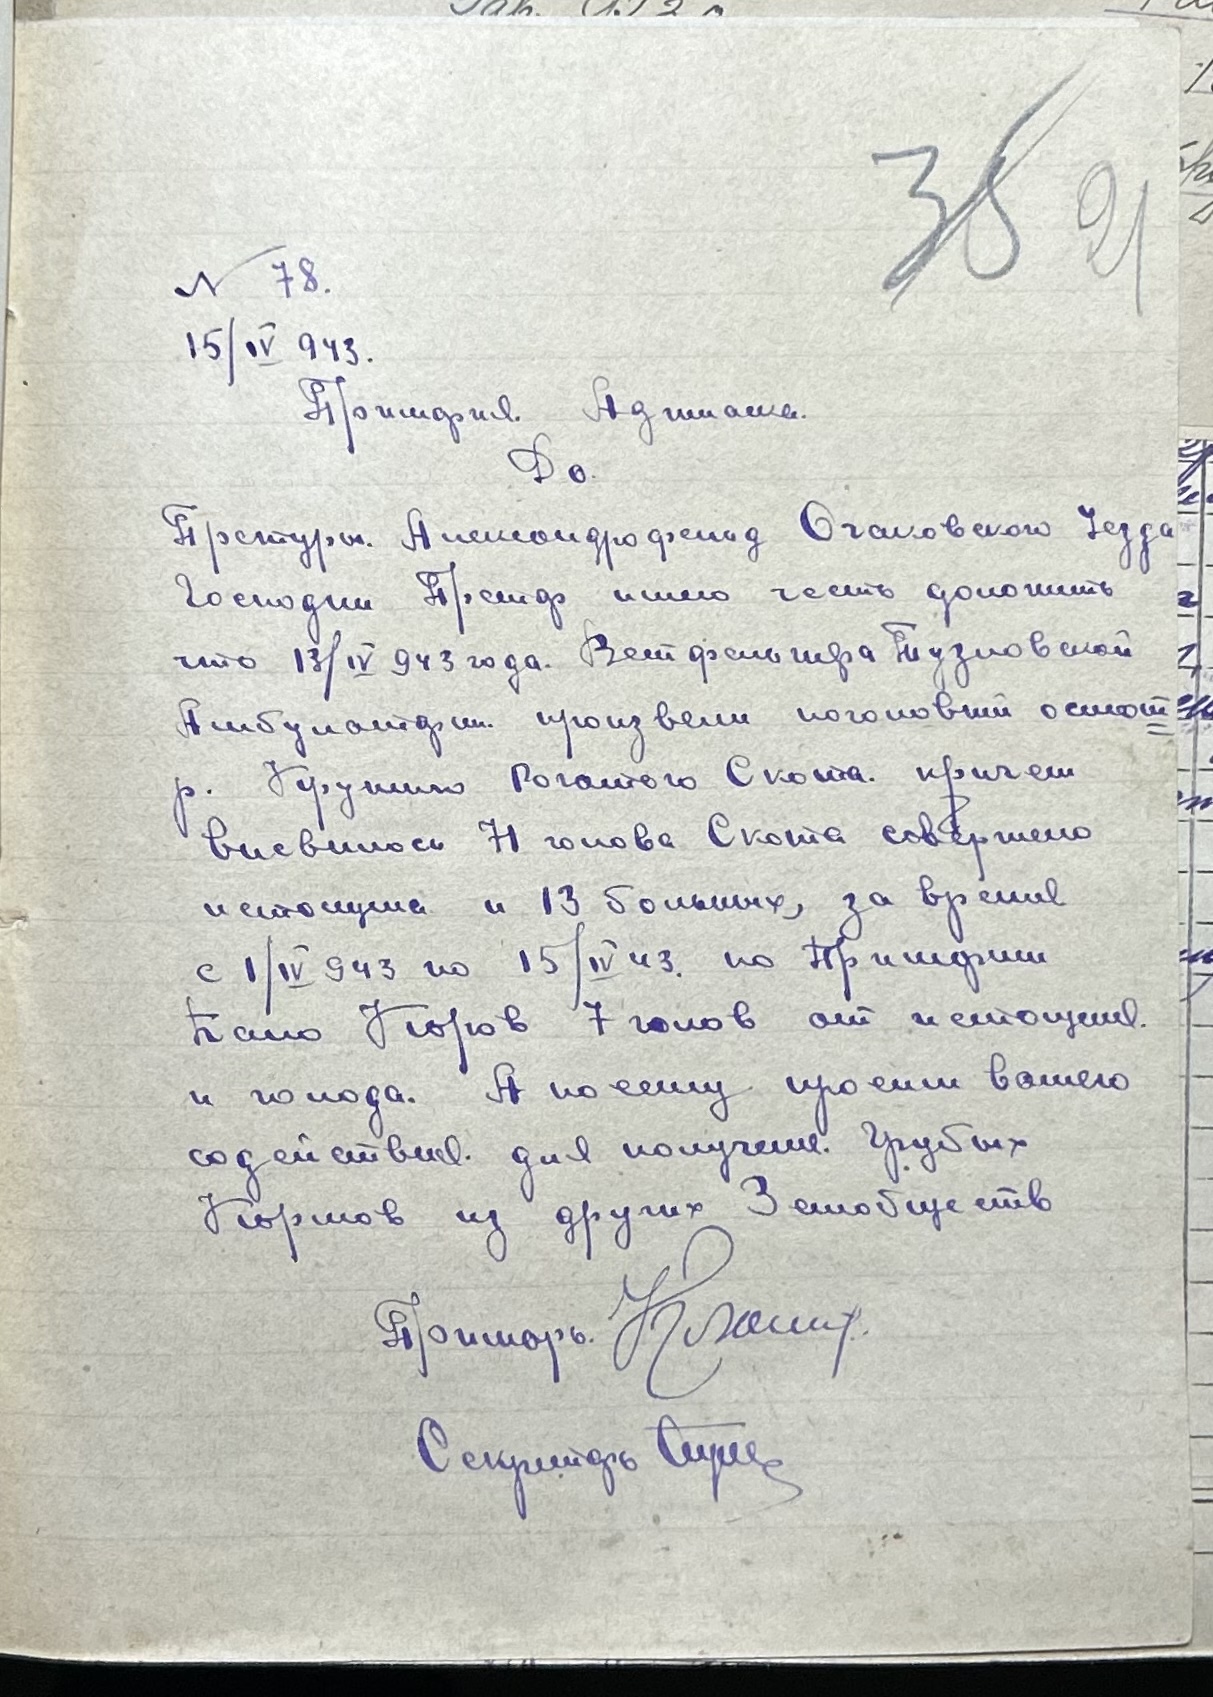 38 91
№ 78.
15/IV 943.
Примария. Аджиаска.
До.
Претуры. Александрофельд Очаковского Уезда
Господин Претор имею честь доложить
что 13/IV 943 года. Ветфельшера Тузловской
Амбулатории. произвели поголовний осмотр
р. Крупного Рогатого Скота. причем
виевилось 71 голова Скота совершено
истощена и 13 больных, за время
с 1/IV 943 по 15/IV 43. по Примарии
Пало Коров 7 голов от истощения.
и голода. А посему просим вашего
содействия. для получения. Грубых
Кормов из других Земобществ
Примарь.
Секретарь